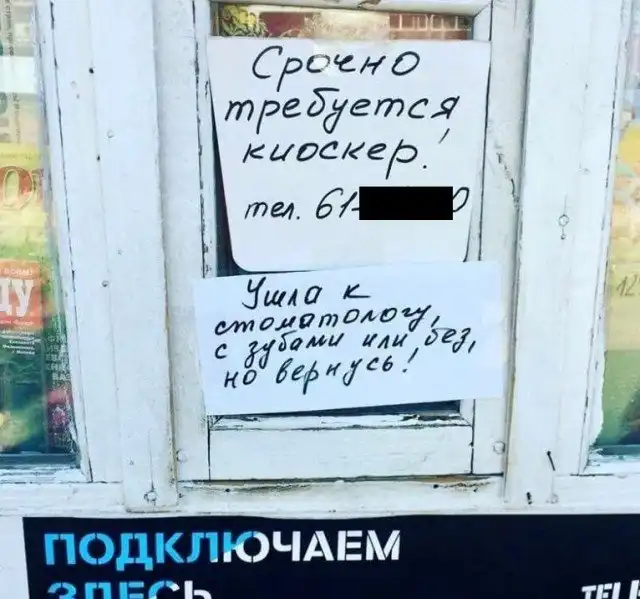 Срочно
требуется
киоскер!
тел. 61-
0
Ушла к
стоматологу,
с зубами или без,
но вернусь!
ПОДКЛЮЧАЕМ
ЗДЕСЬ